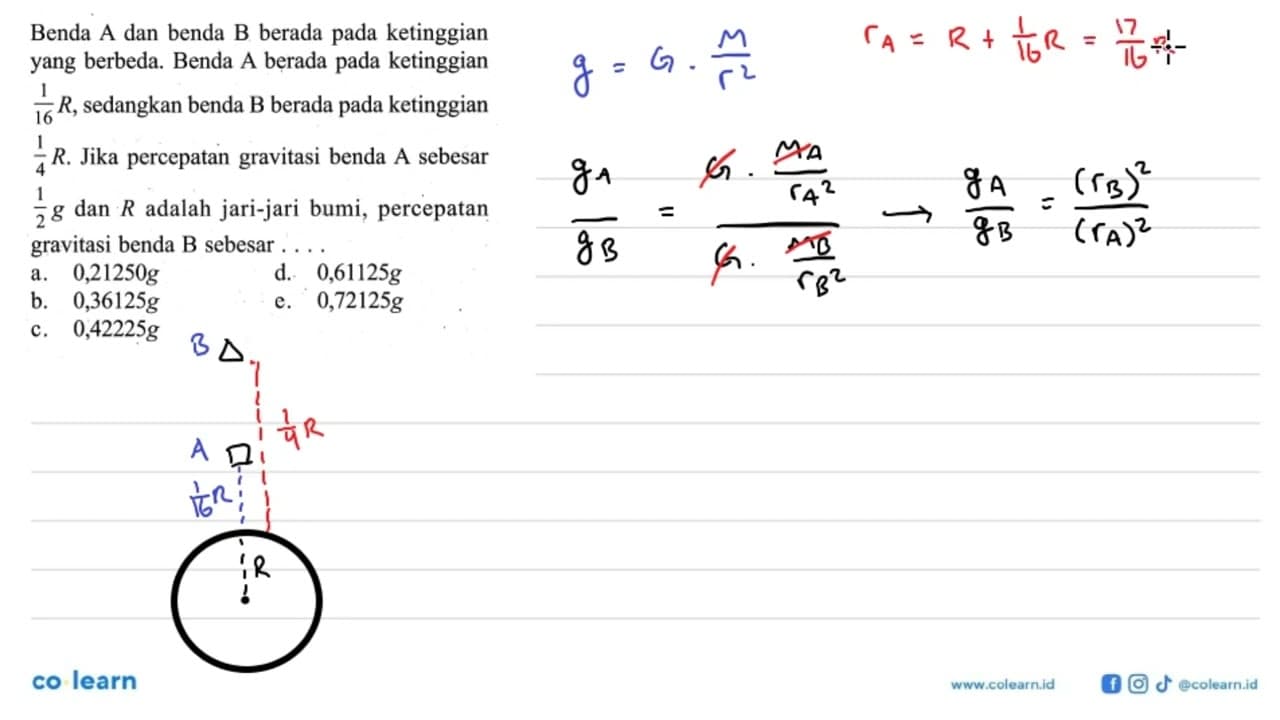 Benda A dan benda B berada pada ketinggian
yang berbeda. Benda A berada pada ketinggian
1/16 R, sedangkan benda B berada pada ketinggian
1/4 R. Jika percepatan gravitasi benda A sebesar
1/2 g dan R adalah jari-jari bumi, percepatan
gravitasi benda B sebesar . . . .
a. 0,21250g d. 0,61125g
b. 0,36125g e. 0,72125g
c. 0,42225g
B
1/4 R
A
1/16 R
R
g = G . M/r²
rA = R + 1/16 R = 17/16 R
gA/gB = (G . MA/rA²)/(G . MB/rB²) → gA/gB = (rB)²/(rA)²
co learn
www.colearn.id
@colearn.id